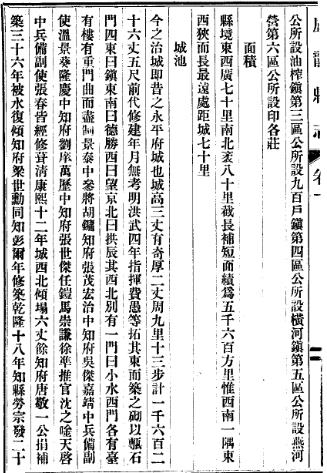 公所設油榨鎮第三區公所設九百戶鎮第四區公所設橫河鎮第五區公所設燕河
營第六區公所設印各莊
面積
縣境東西廣七十里南北袤八十里截長補短面積爲五千六百方里惟西南一隅東
西狹而長最遠處距城七十里
城池
今之治城即昔之永平府城也城高三丈有奇厚二丈周九里十三步計一千六百二
十六丈五尺前代修建年月無考明洪武四年指揮費愚等拓其東而築之砌以甎石
門四東曰鎮東南曰德勝西曰望京北曰拱辰其西北別有一門曰小水西門各有臺
有樓有重門曲而盡制景泰中參將胡鏞知府張茂宏治中知府吳傑嘉靖中兵備副
使溫景葵隆慶中知府劉庠萬歷中知府張世傑任鎧馬崇謙徐準推官沈之唫天啓
中兵備副使張春皆經修葺清康熙十二年城西北傾塌六丈餘知府唐敬一公捐補
築三十六年被水復傾知府梁世勳同知彭爾年修築乾隆十八年知縣勞宗發二十